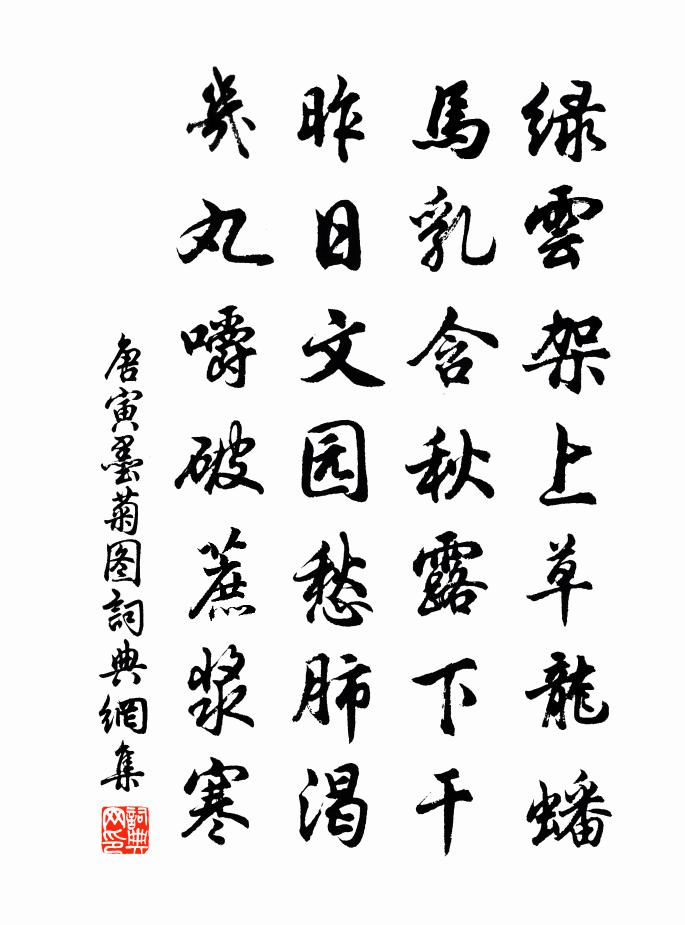 绿雲架上草龍蟠
馬乳含秋露下干
昨日文园愁肺渴
幾丸嚼破蔗漿寒
唐寅墨菊图詞典網集
詞典网印